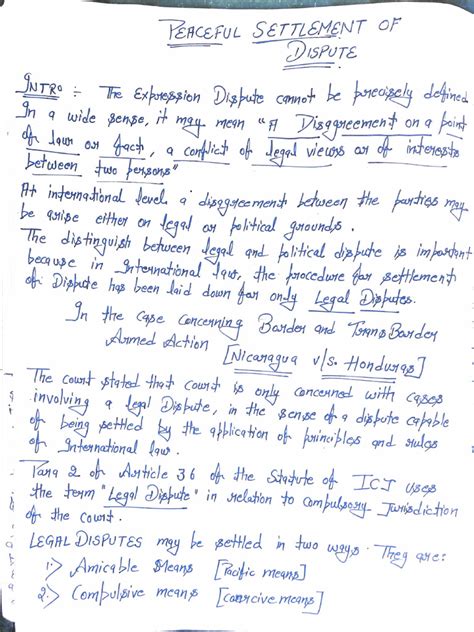 PEACEFUL SETTLEMENT OF
DISPUTE
INTRO :- The Expression Dispute cannot be precisely defined
In a wide sense, it may mean "A Disagreement on a point
of law or fact, a conflict of legal views or of interests
between two persons"
At international level, a disagreement between the parties may
be arise either on legal or political grounds.
The distinguish between legal and political dispute is important
because in International law, the procedure for settlement
of Dispute has been laid down for only Legal Disputes.
In the case concerning Border and TransBorder
Armed Action
[Nicaragua v/s. Honduras]
The court stated that court is only concerned with cases
involving a legal Dispute, in the sense of a dispute capable
of being settled by the application of principles and rules
of International law.
Para 2 of Article 36 of the Statute of ICJ uses
the term "Legal Dispute" in relation to compulsory Jurisdiction
of the court.
LEGAL DISPUTES may be settled in two ways. They are:
1.) Amicable Means [Pacific means]
2.) Compulsive means [coercive means]